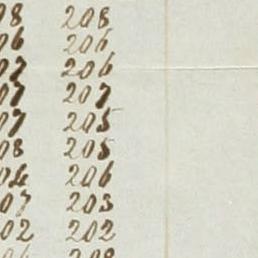 08 208
06 206
07 206
07 207
07 205
08 205
04 206
07 203
02 202